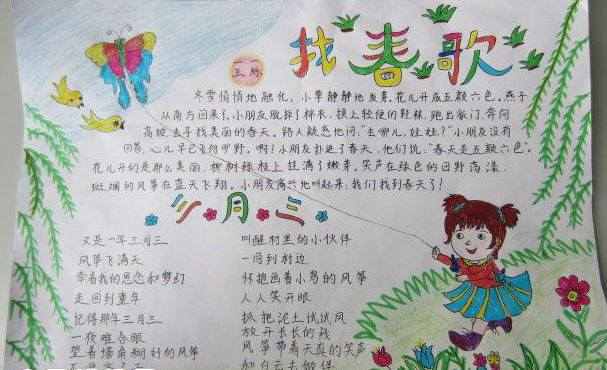 找春歌
冬雪悄悄地融化,小草静静地发芽,花儿开成五颜六色。燕子
从南方回来了,小朋友脱掉了棉衣,换上轻便的鞋袜,跑出家门,奔向
高坡,去寻找美丽的春天。路人疑惑地问:"去哪儿,娃娃?"小朋友没有
回答,心儿早已飞向田野。啊!小朋友扑进了春天,他们说:"春天是五颜六色"。
花儿开的是那么美丽,柳树绿枝上挂满了嫩芽。笑声在绿色的田野荡漾,
斑斓的风筝在蓝天飞翔。小朋友高兴地叫起来:我们找到春天了!
三月三
又是一年三月三
风筝飞满天
牵着我的思念和梦幻
走回到童年
记得那年三月三
一夜难合眼
望着墙角糊好的风筝
叫醒村里的小伙伴
一同到村边
怀抱画着小鸟的风筝
人人笑开眼
抓把泥土试试风
放开长长的线
风筝带着天真的笑声
和白云去做伴